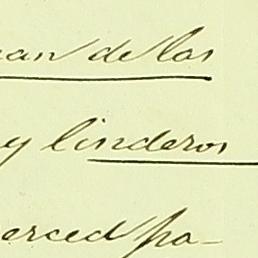 uan de las
y linderos
erced pa-